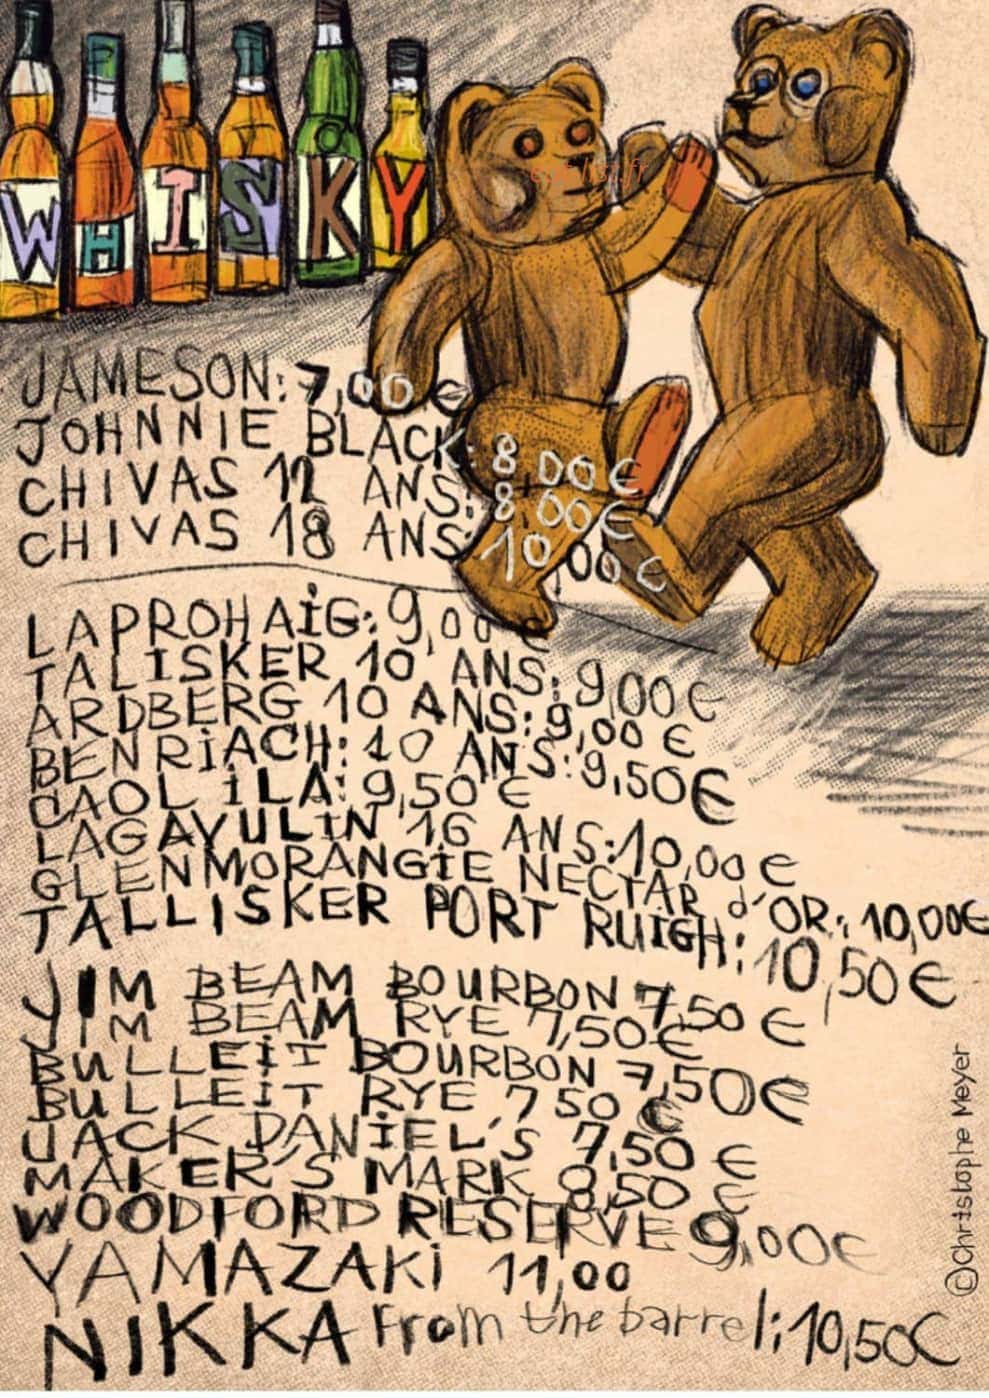 WHISKY
JAMESON: 7,00 €
JOHNNIE BLACK: 8 00 €
CHIVAS 12 ANS: 8 00 €
CHIVAS 18 ANS: 10,00 €
LAPROHAIG: 9,00 €
TALISKER 10 ANS: 9,00 €
ARDBERG 10 ANS: 9,00 €
BENRIACH: 10 ANS: 9,50 €
CAOL ILA: 9,50 €
LAGAVULIN 16 ANS: 10,00 €
GLENMORANGIE NECTAR d'OR: 10,00€
TALLISKER PORT RUIGH: 10,50 €
JIM BEAM BOURBON 7,50 €
JIM BEAM RYE 7,50 €
BULLEIT BOURBON 7,50€
BULLEIT RYE 7 50 €
JACK DANIEL'S 7,50 €
MAKER'S MARK 8,50 €
WOODFORD RESERVE 9,00€
YAMAZAKI 11,00
NIKKA From the barrel: 10,50€
©Christophe Meyer